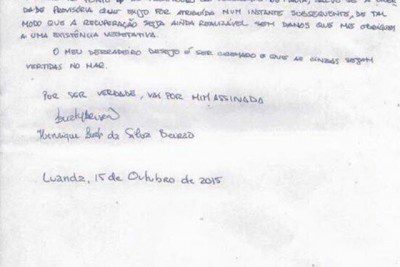 DADE PROVISÓRIA FOR ATRIBUÍDA NUM INSTANTE SUBSEQUENTE, DE TAL
MODO QUE A RECUPERAÇÃO SEJA AINDA REALIZÁVEL SEM DANOS QUE ME OBRIGUEM
A UMA EXISTÊNCIA VEGETATIVA.
O MEU DERRADEIRO DESEJO É SER CREMADO E QUE AS CINZAS SEJAM
VERTIDAS NO MAR.
POR SER VERDADE, VAI POR MIM ASSINADA
Henrique da Silva Beirão
Luanda, 15 de Outubro de 2015